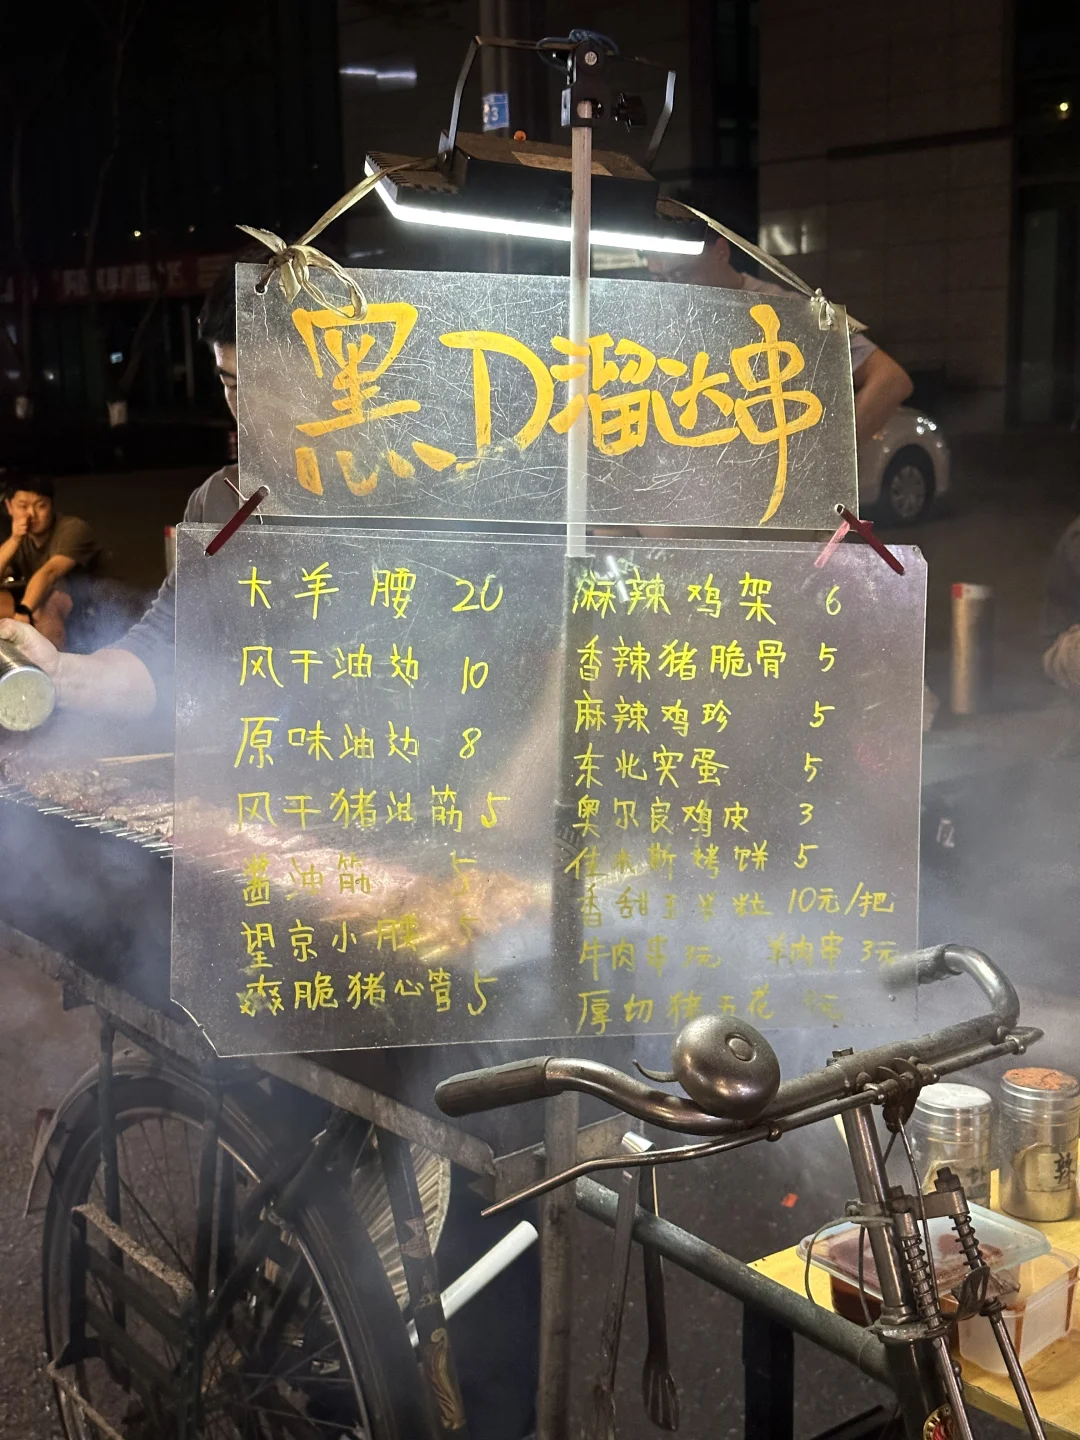 黑D溜达串
大羊腰 20
风干油边 10
原味油边 8
风干猪油筋 5
酱油筋 5
望京小腰 5
爽脆猪心管 5
麻辣鸡架 6
香辣猪脆骨 5
麻辣鸡珍 5
东北实蛋 5
奥尔良鸡皮 3
烤饼 5
香甜玉米粒 10元/把
牛肉串 元 羊肉串 3元
厚切猪五花 元
辣